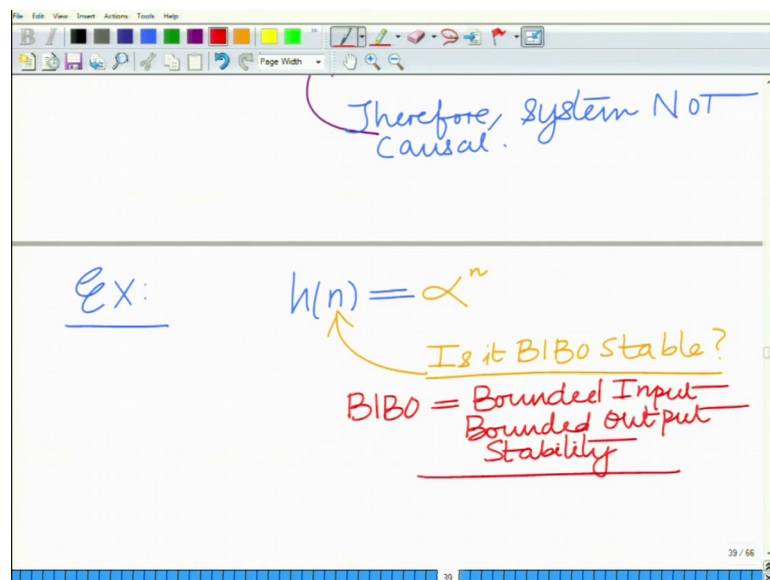 File Edit View Insert Actions Tools Help
B I
Page Width
Therefore, System NOT
Causal.
Ex: h(n) = α^n
Is it BIBO Stable?
BIBO = Bounded Input
Bounded Output
Stability
39 / 66
39